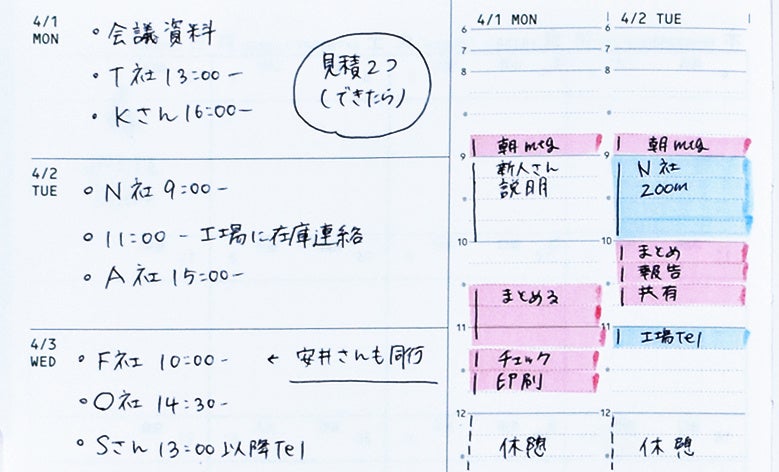 4/1
MON
• 会議資料
• T社 13:00-
• Kさん 16:00-
見積2つ
(できたら)
4/2
TUE
• N社 9:00-
• 11:00- 工場に在庫連絡
• A社 15:00-
4/3
WED
• F社 10:00- ← 安井さんも同行
• O社 14:30-
• Sさん 13:00以降Tel
4/1 MON
6
7
8
朝mtg
9
新人さん
説明
10
まとめる
11
チェック
印刷
12
休憩
4/2 TUE
6
7
8
朝mtg
9
N社
zoom
10
まとめ
報告
共有
11
工場Tel
12
休憩